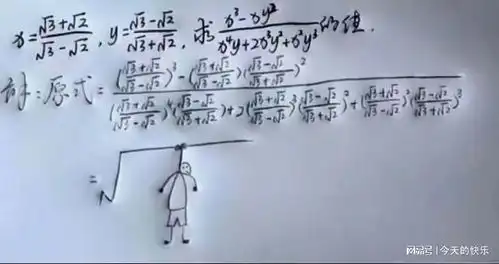 x=\frac{√3+√2}{√3-√2}, y=\frac{√3-√2}{√3+√2}, 求\frac{x³-xy²}{x⁴y+2x³y²+x²y³}的值.
解:原式=\frac{(\frac{√3+√2}{√3-√2})³-(\frac{√3+√2}{√3-√2})(\frac{√3-√2}{√3+√2})²}{(\frac{√3+√2}{√3-√2})⁴(\frac{√3-√2}{√3+√2})+2(\frac{√3+√2}{√3-√2})³(\frac{√3-√2}{√3+√2})²+(\frac{√3+√2}{√3-√2})²(\frac{√3-√2}{√3+√2})³}
=√
网易号 | 今天的快乐